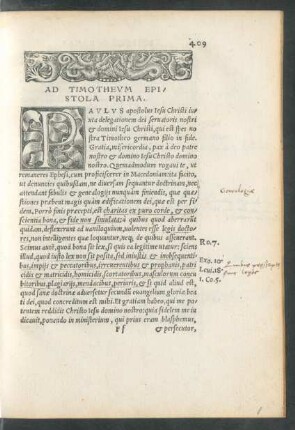 409
AD TIMOTHEVM EPI/
STOLA PRIMA.
PAVLVS apostolus Iesu Christi iu
xta delegationem dei seruatoris nostri
& domini Iesu Christi, qui est spes no
stra Timotheo germano filio in fide.
Gratia, misericordia, pax à deo patre
nostro & domino Iesu Christo domino
nostro. Quemadmodum rogaui te, ut
remaneres Ephesi, cum proficiscerer in Macedoniam ita facito,
ut denuncies quibusdam, ne diuersam sequantur doctrinam, nec
attendant fabulis & genealogijs nunquam finiendis, quæ quæ-
stiones præbent magis quàm ædificationem dei, quæ est per fi
dem. Porrò finis præcepti, est charitas ex puro corde, & con
scientia bona, & fide non simulata: à quibus quod aberrarint
quidam, deflexerunt ad uaniloquium, uolentes esse legis docto-
res, non intelligentes quæ loquuntur, neq; de quibus asseuerant.
Scimus autē, quod bona sit lex, si quis ea legitime utatur: sciens
illud, quod iusto lex non sit posita, sed iniustis & inobsequenti-
bus, impijs & peccatoribus, irreuerentibus & prophanis, patri
cidis & matricidis, homicidis, scortatoribus, masculorum concu
bitoribus, plagiarijs, mendacibus, periuris, & si quid aliud est,
quod sanæ doctrinæ aduersetur secundū euangelium gloriæ bea
ti dei, quod concreditum est mihi. Et gratiam habeo, qui me po-
tentem reddidit Christo Iesu domino nostro: quia fidelem me iu
dicauit, ponendo in ministerium, qui prius eram blasphemus,
Ff & persecutor,
Genealogiæ
Ro.7.
Exo.20
Leui.18
1. Co.5.